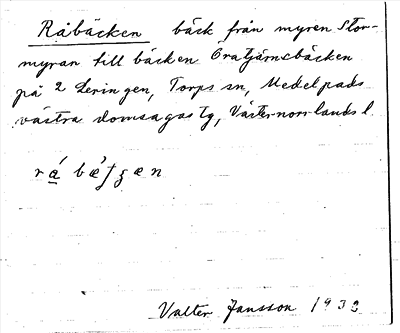 Råbäcken bäck från myren Stor-
myran till bäcken Öratjärnsbäcken
på 2 Leringen, Torps sn, Medelpads
västra domsagas tg, Västernorrlands l
Valter Jansson 193